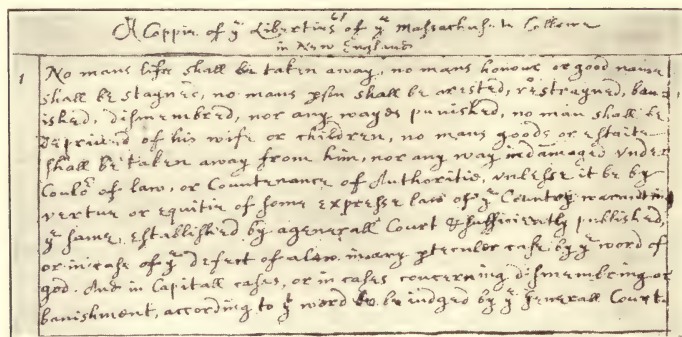 A Coppie of yᵉ Liberties of yᵉ Massachusets Collonie
in New England
1 No mans life shall be taken away, no mans honour or good name
shall be stayned, no mans pson shall be arested, restrayned, ban=
ished, dismembred, nor any wayes punished, no man shall be
deprived of his wife or children, no mans goods or estaite
shall be taken away from him, nor any way indamaged vnder
Coulor of law, or Countenance of Authoritie, vnlesse it be by
vertue or equitie of some expresse law of yᵉ Country waranting
yᵉ same, established by a generall Court & sufficiently published,
or in case of yᵉ defect of a law in any pteculer case by yᵉ word of
god. And in Capitall cases, or in cases concerning dismembring or
banishment, according to yᵗ word to be iudged by yᵉ Generall Court.